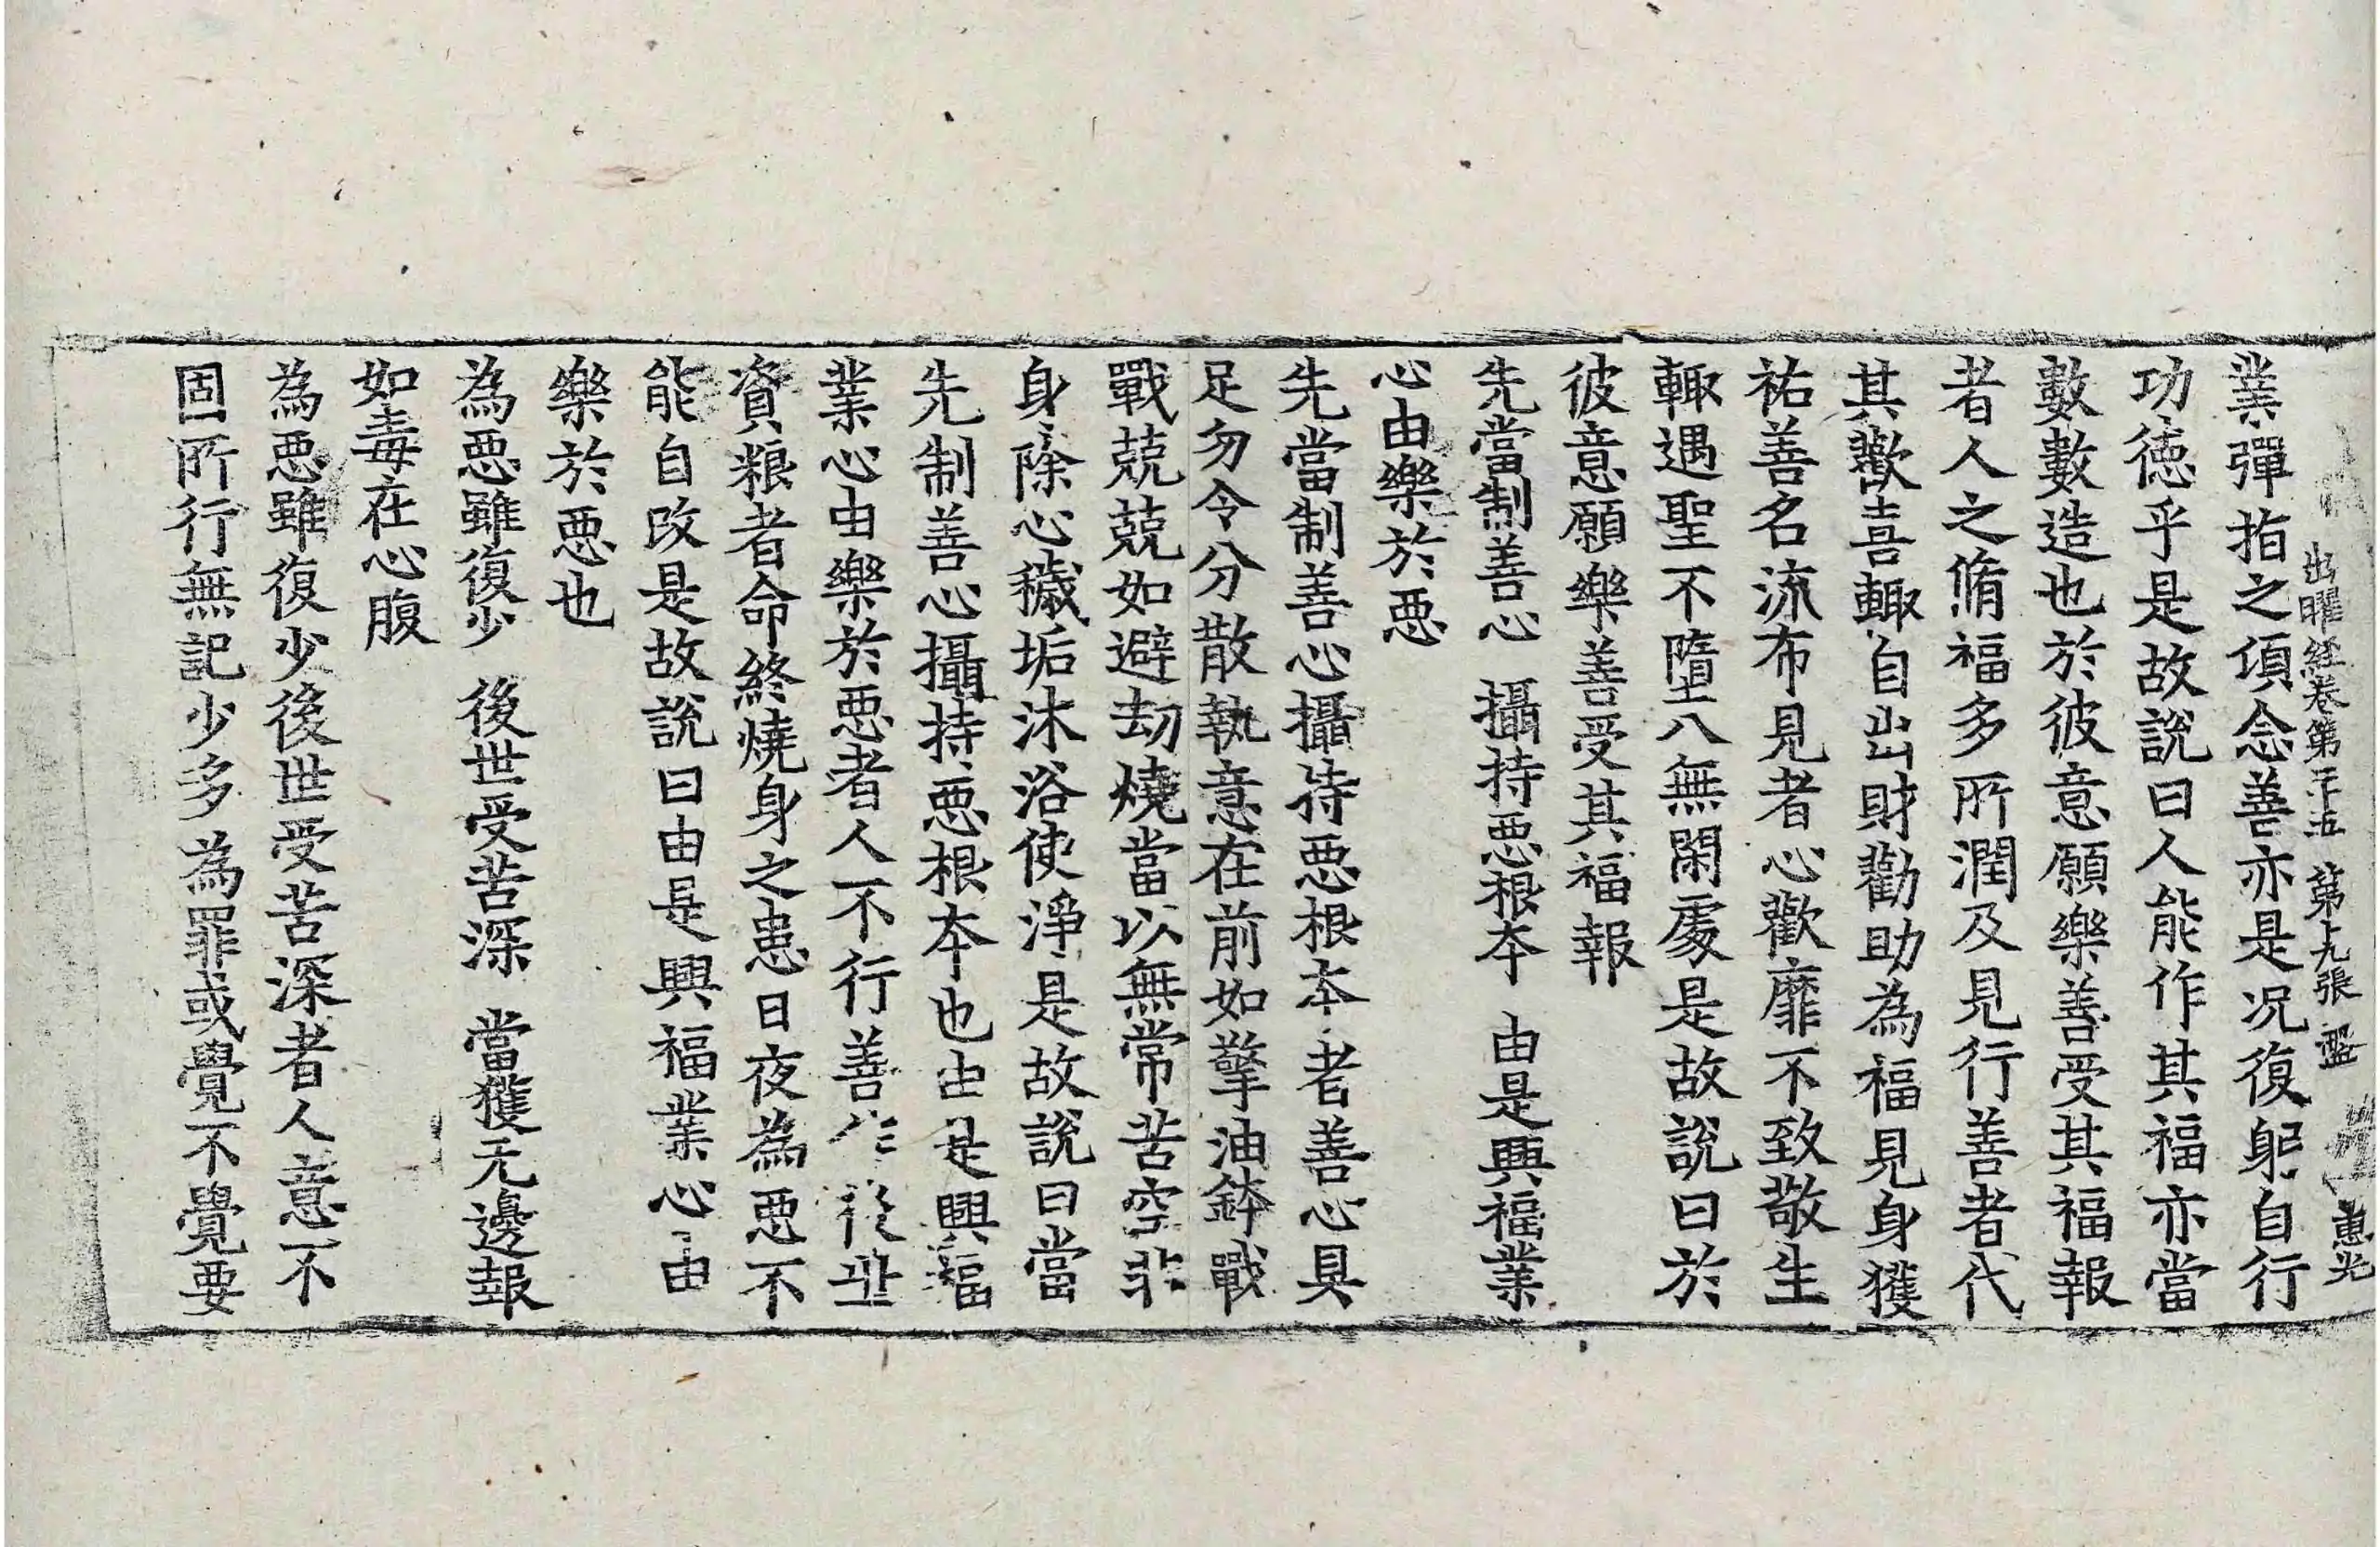 出曜経卷第二十五 第十九張 盤 惠光
業彈指之頃念善亦是況復躬自行
功德乎是故說曰人能作其福亦當
數數造也於彼意願樂善受其福報
者人之脩福多所潤及見行善者代
其歡喜輙自出財勸助為福見身獲
祐善名流布見者心歡靡不致敬生
輙遇聖不墮八無閑處是故說曰於
彼意願樂善受其福報
先當制善心 攝持惡根本 由是興福業
心由樂於惡
先當制善心攝持惡根本者善心具
足勿令分散執意在前如擎油鉢戰
戰兢兢如避劫燒當以無常苦空非
身除心穢垢沐浴使淨是故說曰當
先制善心攝持惡根本也由是興福
業心由樂於惡者人不行善後
資粮者命終燒身之患日夜為惡不
能自改是故說曰由是興福業心由
樂於惡也
為惡雖復少 後世受苦深 當獲无邊報
如毒在心腹
為惡雖復少後世受苦深者人意不
固所行無記少多為罪或覺不覺要